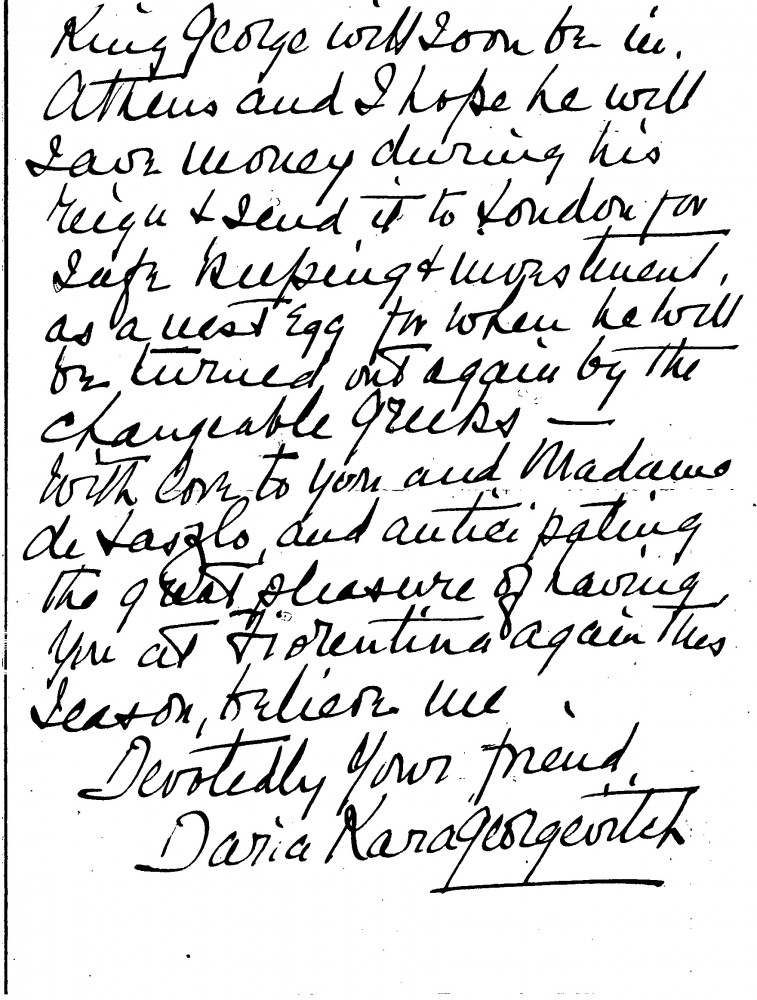 King George will soon be in
Athens and I hope he will
save money during his
reign & send it to London for
safe keeping & investment,
as a nest egg for when he will
be turned out again by the
changeable Greeks —
With love to you and Madame
de Laszlo, and anticipating
the great pleasure of having
you at Fiorentina again this
season, believe me
Devotedly Your friend,
Daria Karageorgevitch